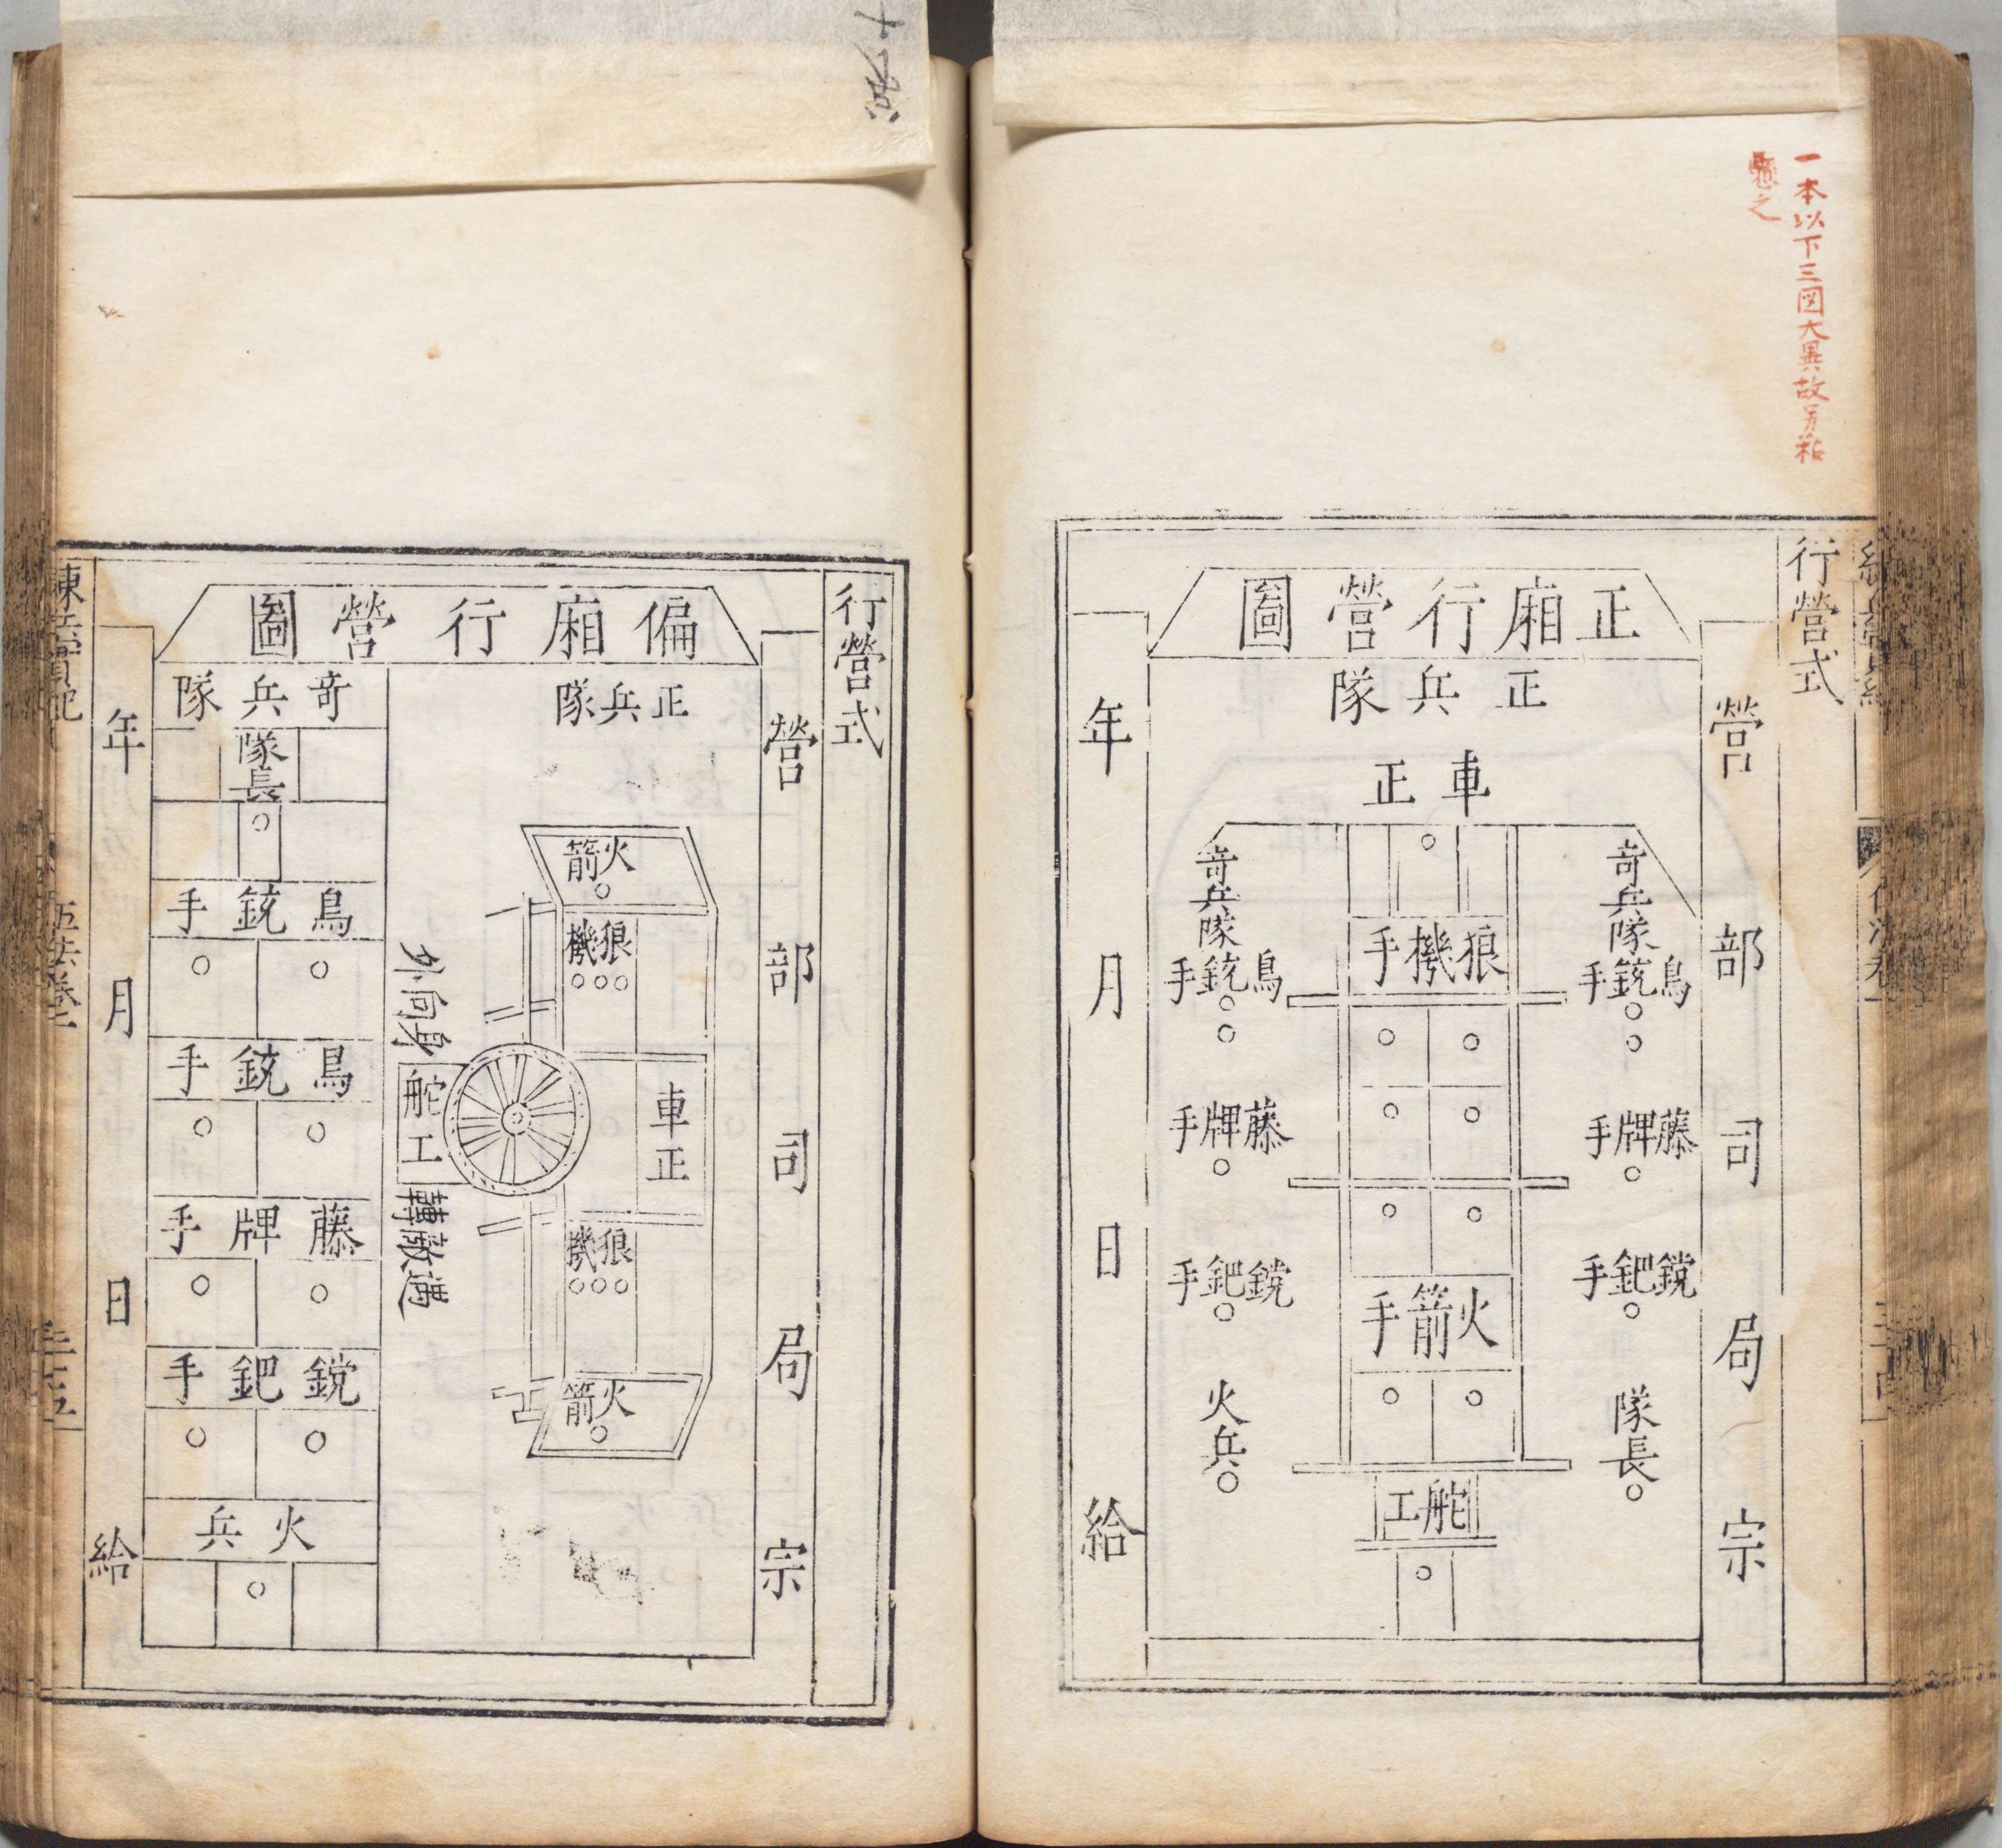 一本以下三図大異故另粘
懸之
行營式
營部司局宗
正廂行營圖
正兵隊
車正
奇兵隊
鳥銃手
藤牌手
鎲鈀手
隊長
狼機手
火箭手
舵工
奇兵隊
鳥銃手
藤牌手
鎲鈀手
火兵
年月日給
行營式
營部司局宗
偏廂行營圖
正兵隊
火箭
狼機
車正
狼機
火箭
身向外
舵工
遇敵轉
奇兵隊
隊長
鳥銃手
鳥銃手
藤牌手
鎲鈀手
火兵
年月日給
練兵實紀